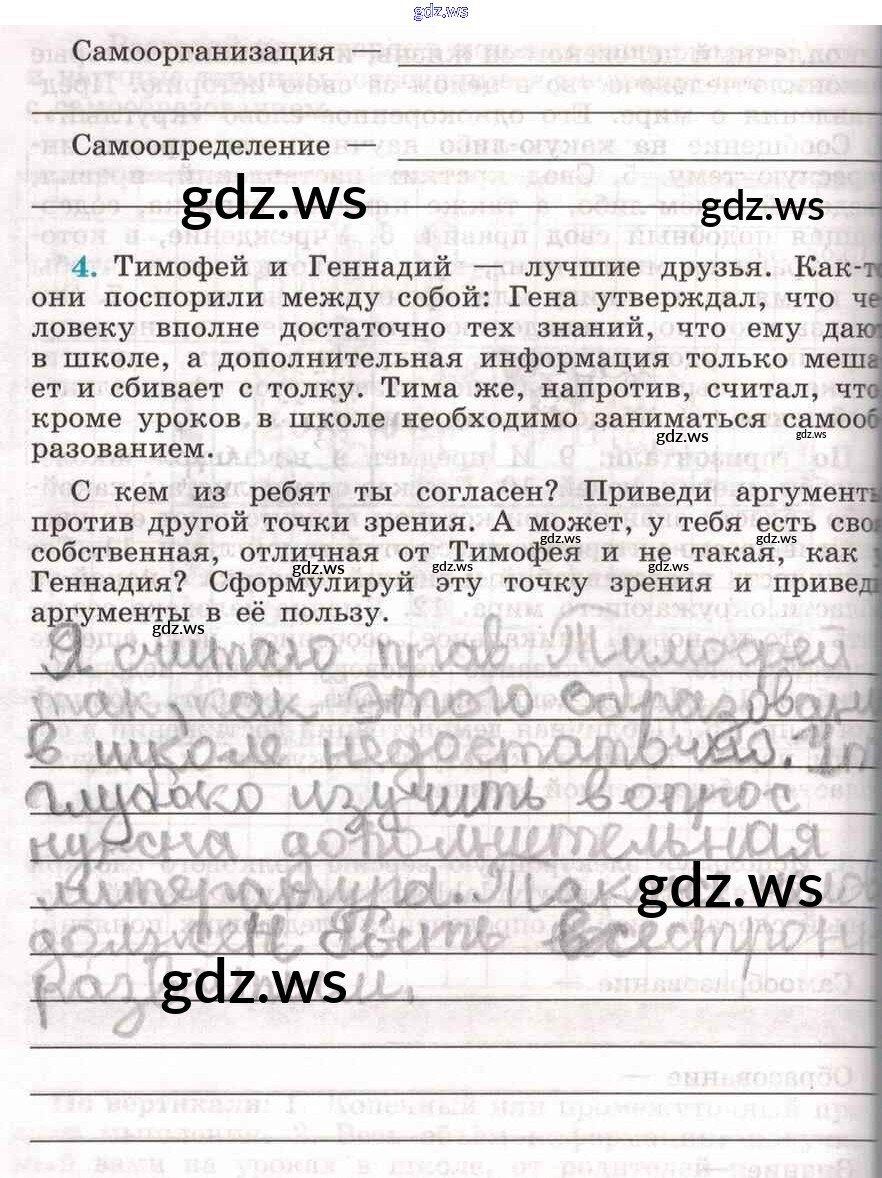 gdz.ws
Самоорганизация —
Самоопределение —
gdz.ws gdz.ws
4. Тимофей и Геннадий — лучшие друзья. Как-то
они поспорили между собой: Гена утверждал, что че
ловеку вполне достаточно тех знаний, что ему дают
в школе, а дополнительная информация только меша
ет и сбивает с толку. Тима же, напротив, считал, что
кроме уроков в школе необходимо заниматься самооб
gdz.ws gdz.ws
разованием.
С кем из ребят ты согласен? Приведи аргументы
против другой точки зрения. А может, у тебя есть своя
gdz.ws gdz.ws
собственная, отличная от Тимофея и не такая, как у
gdz.ws gdz.ws gdz.ws
Геннадия? Сформулируй эту точку зрения и приведи
аргументы в её пользу.
gdz.ws
Я считаю прав Тимофей
так как этого образовани
в школе недостаточно.
глубоко изучить вопрос
нужна дополнительная
литература. Также
gdz.ws
должен быть всесторон
развитым.
gdz.ws